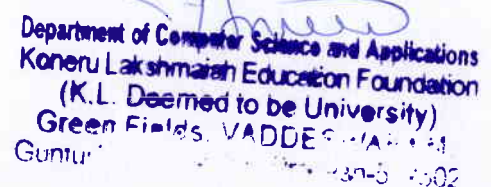 Department of Computer Science and Applications
Koneru Lakshmaiah Education Foundation
(K.L. Deemed to be University)
Green Fields, VADDES
Guntur